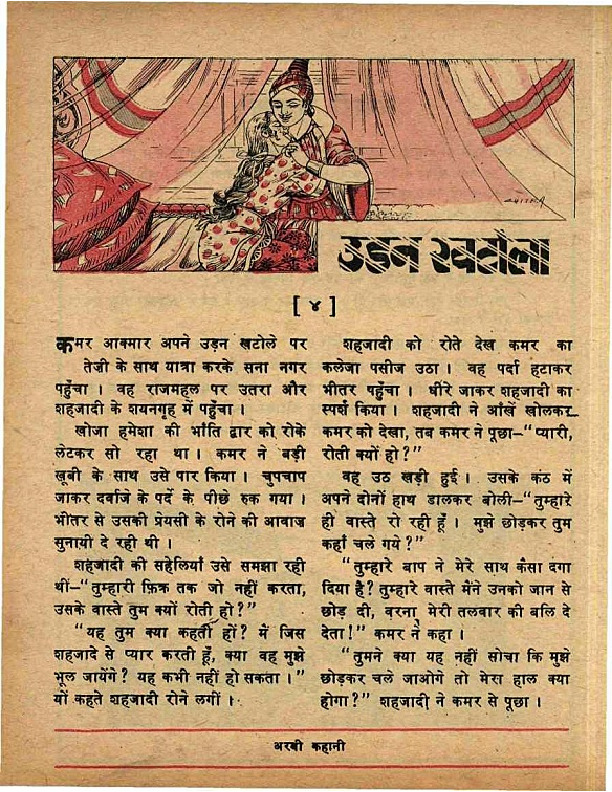 CHITRA
उड़न खटोला
[ ४ ]
कमर आक्मार अपने उड़न खटोले पर
तेजी के साथ यात्रा करके सना नगर
पहुँचा । वह राजमहल पर उतरा और
शहजादी के शयनगृह में पहुँचा ।
खोजा हमेशा की भाँति द्वार को रोके
लेटकर सो रहा था । कमर ने बड़ी
खूबी के साथ उसे पार किया । चुपचाप
जाकर दर्वाजे के पर्दे के पीछे रुक गया ।
भीतर से उसकी प्रेयसी के रोने की आवाज
सुनायी दे रही थी ।
शहजादी की सहेलियाँ उसे समझा रही
थीं-“तुम्हारी फ़िक्र तक जो नहीं करता,
उसके वास्ते तुम क्यों रोती हो?”
“यह तुम क्या कहतीं हों? में जिस
शहजादे से प्यार करती हूँ, क्या वह मुझे
भूल जायेंगे? यह कभी नहीं हो सकता ।”
यों कहते शहजादी रोने लगीं ।
शहजादी को रोते देख कमर का
कलेजा पसीज उठा । वह पर्दा हटाकर
भीतर पहुँचा । धीरे जाकर शहजादी का
स्पर्श किया । शहजादी ने आँखें खोलकर
कमर को देखा, तब कमर ने पूछा-“प्यारी,
रोती क्यों हो?”
वह उठ खड़ी हुई । उसके कंठ में
अपने दोनों हाथ डालकर बोली-“तुम्हारे
ही वास्ते रो रही हूँ । मुझे छोड़कर तुम
कहाँ चले गये?”
“तुम्हारे बाप ने मेरे साथ कैसा दगा
दिया है? तुम्हारे वास्ते मैंने उनको जान से
छोड़ दी, वरना मेरी तलवार की बलि दे
देता!” कमर ने कहा ।
“तुमने क्या यह नहीं सोचा कि मुझे
छोड़कर चले जाओगे तो मेरा हाल क्या
होगा?” शहजादी ने कमर से पूछा ।
अरबी कहानी